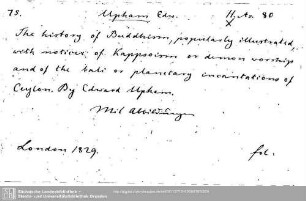 75. Upham Edw. H. As. 80
X
The history of Buddhism, popularly illustrated,
with notices of Kappooism or demon worship
and of the bali or planetary incantations of
Ceylon. By Edward Upham.
Mit Abbildungen
London 1829. fol.
Sächsische Landesbibliothek –
Staats- und Universitätsbibliothek Dresden